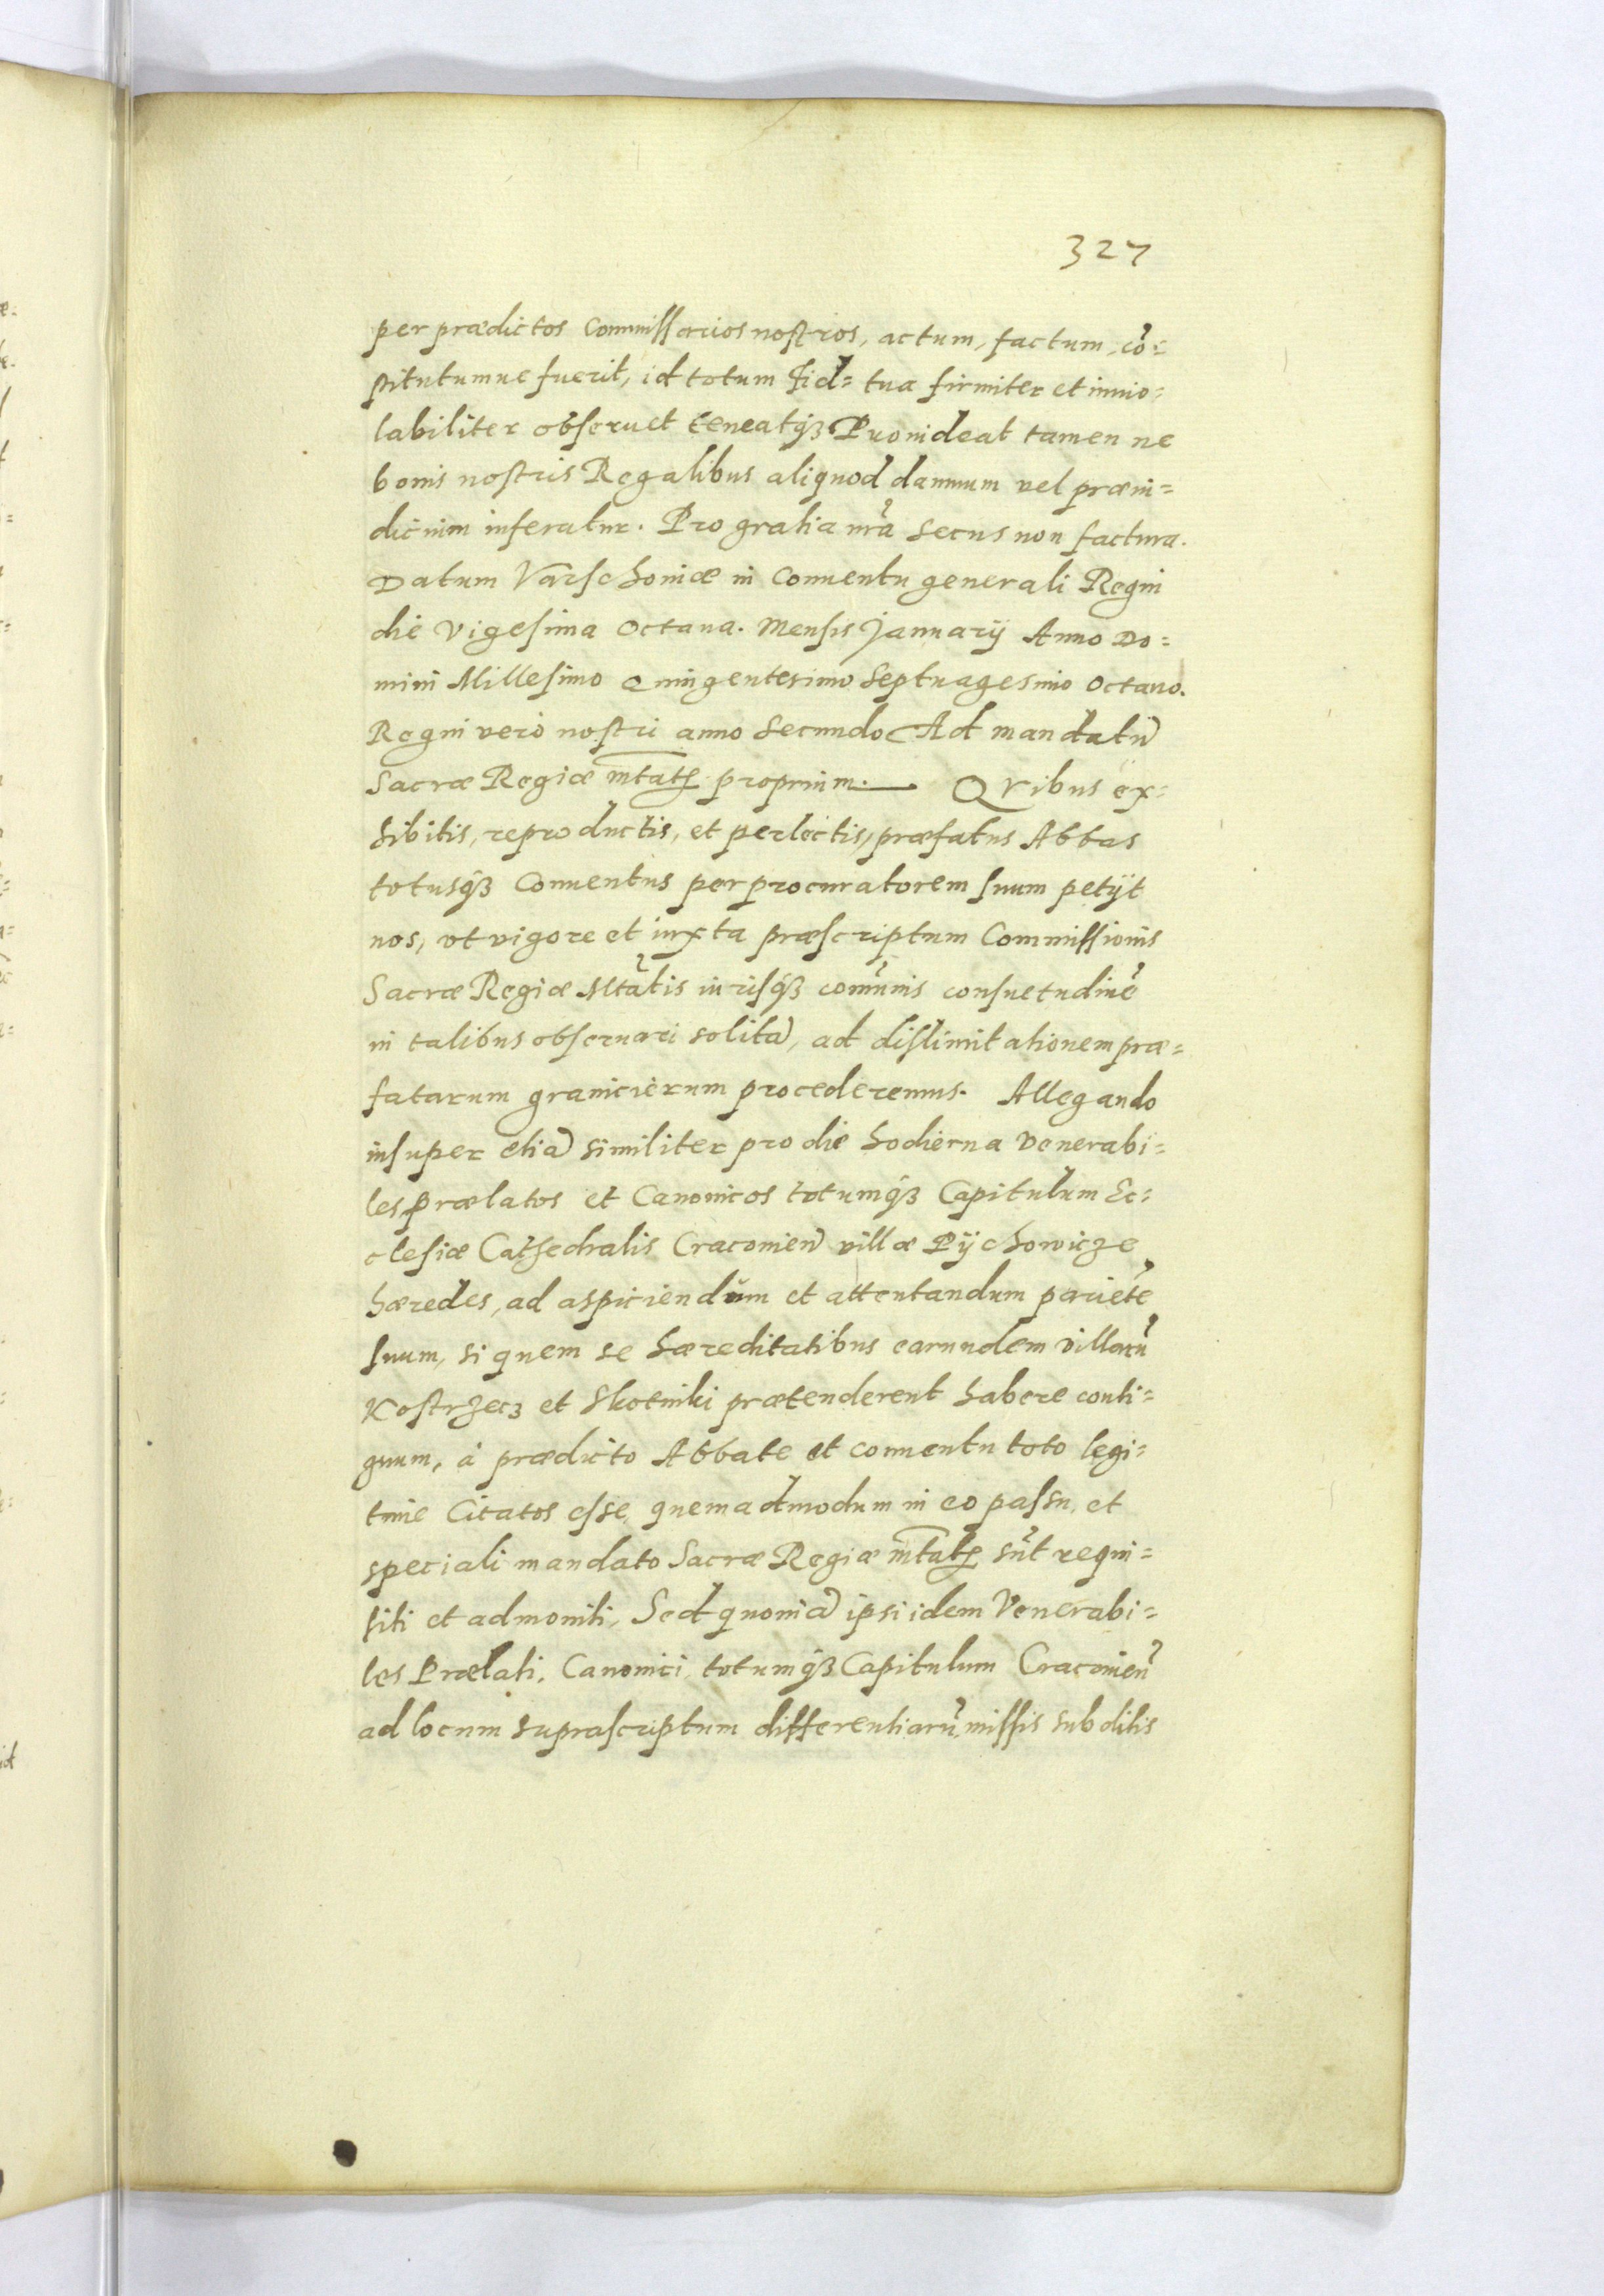 327
per prædictos Commissarios nostros, actum, factum, cõ=
stitutumue fuerit, id totum Fid= tua firmiter et inuio=
labiliter obseruet teneatq́ꝫ Prouideat tamen ne
bonis nostris Regalibus aliquod damnum vel præiu=
dicium inferatur. Pro gratia nr̃a secus non factura.
Datum Varschouiæ in Conuentu generali Regni
die Vigesima Octaua. Mensis Januarij Anno Do=
mini Millesimo Quingentesimo Septuagesimo Octauo.
Regni verò nostri anno Secundo Ad mandatũ
Sacræ Regiæ mtatꝭ proprium. — QVibus ex=
hibitis, reproductis, et perlectis, præfatus Abbas
totusq́ꝫ Conuentus per procuratorem suum petijt
nos, vt vigore et iuxta præscriptum Commissionis
Sacræ Regiæ Mtãtis iurisq́ꝫ com̃unis consuetudinẽ
in talibus obseruari solitã, ad dislimitationem præ=
fatarum granicierum procederemus. Allegando
insuper etiã similiter pro die hodierna Venerabi=
les prælatos et Canonicos totumq́ꝫ Capitulum Ec=
clesiæ Cathedralis Cracouieñ villæ Pijchowicze
hæredes, ad aspiciendum et attentandum parietẽ
suum, si quem se hæreditatibus earundem villarũ
Kostrzecz et Skotniki prætenderent habere conti=
guum, à prædicto Abbate et conuentu toto legi=
time Citatos esse, quemadmodum in eo passu, et
speciali mandato Sacræ Regiæ mtatꝭ sũt requi=
siti et admoniti, Sed quoniã ipsi idem Venerabi=
les Prælati, Canonici, totumq́ꝫ Capitulum Cracouieñ
ad locum suprascriptum differentiarũ, missis subditis